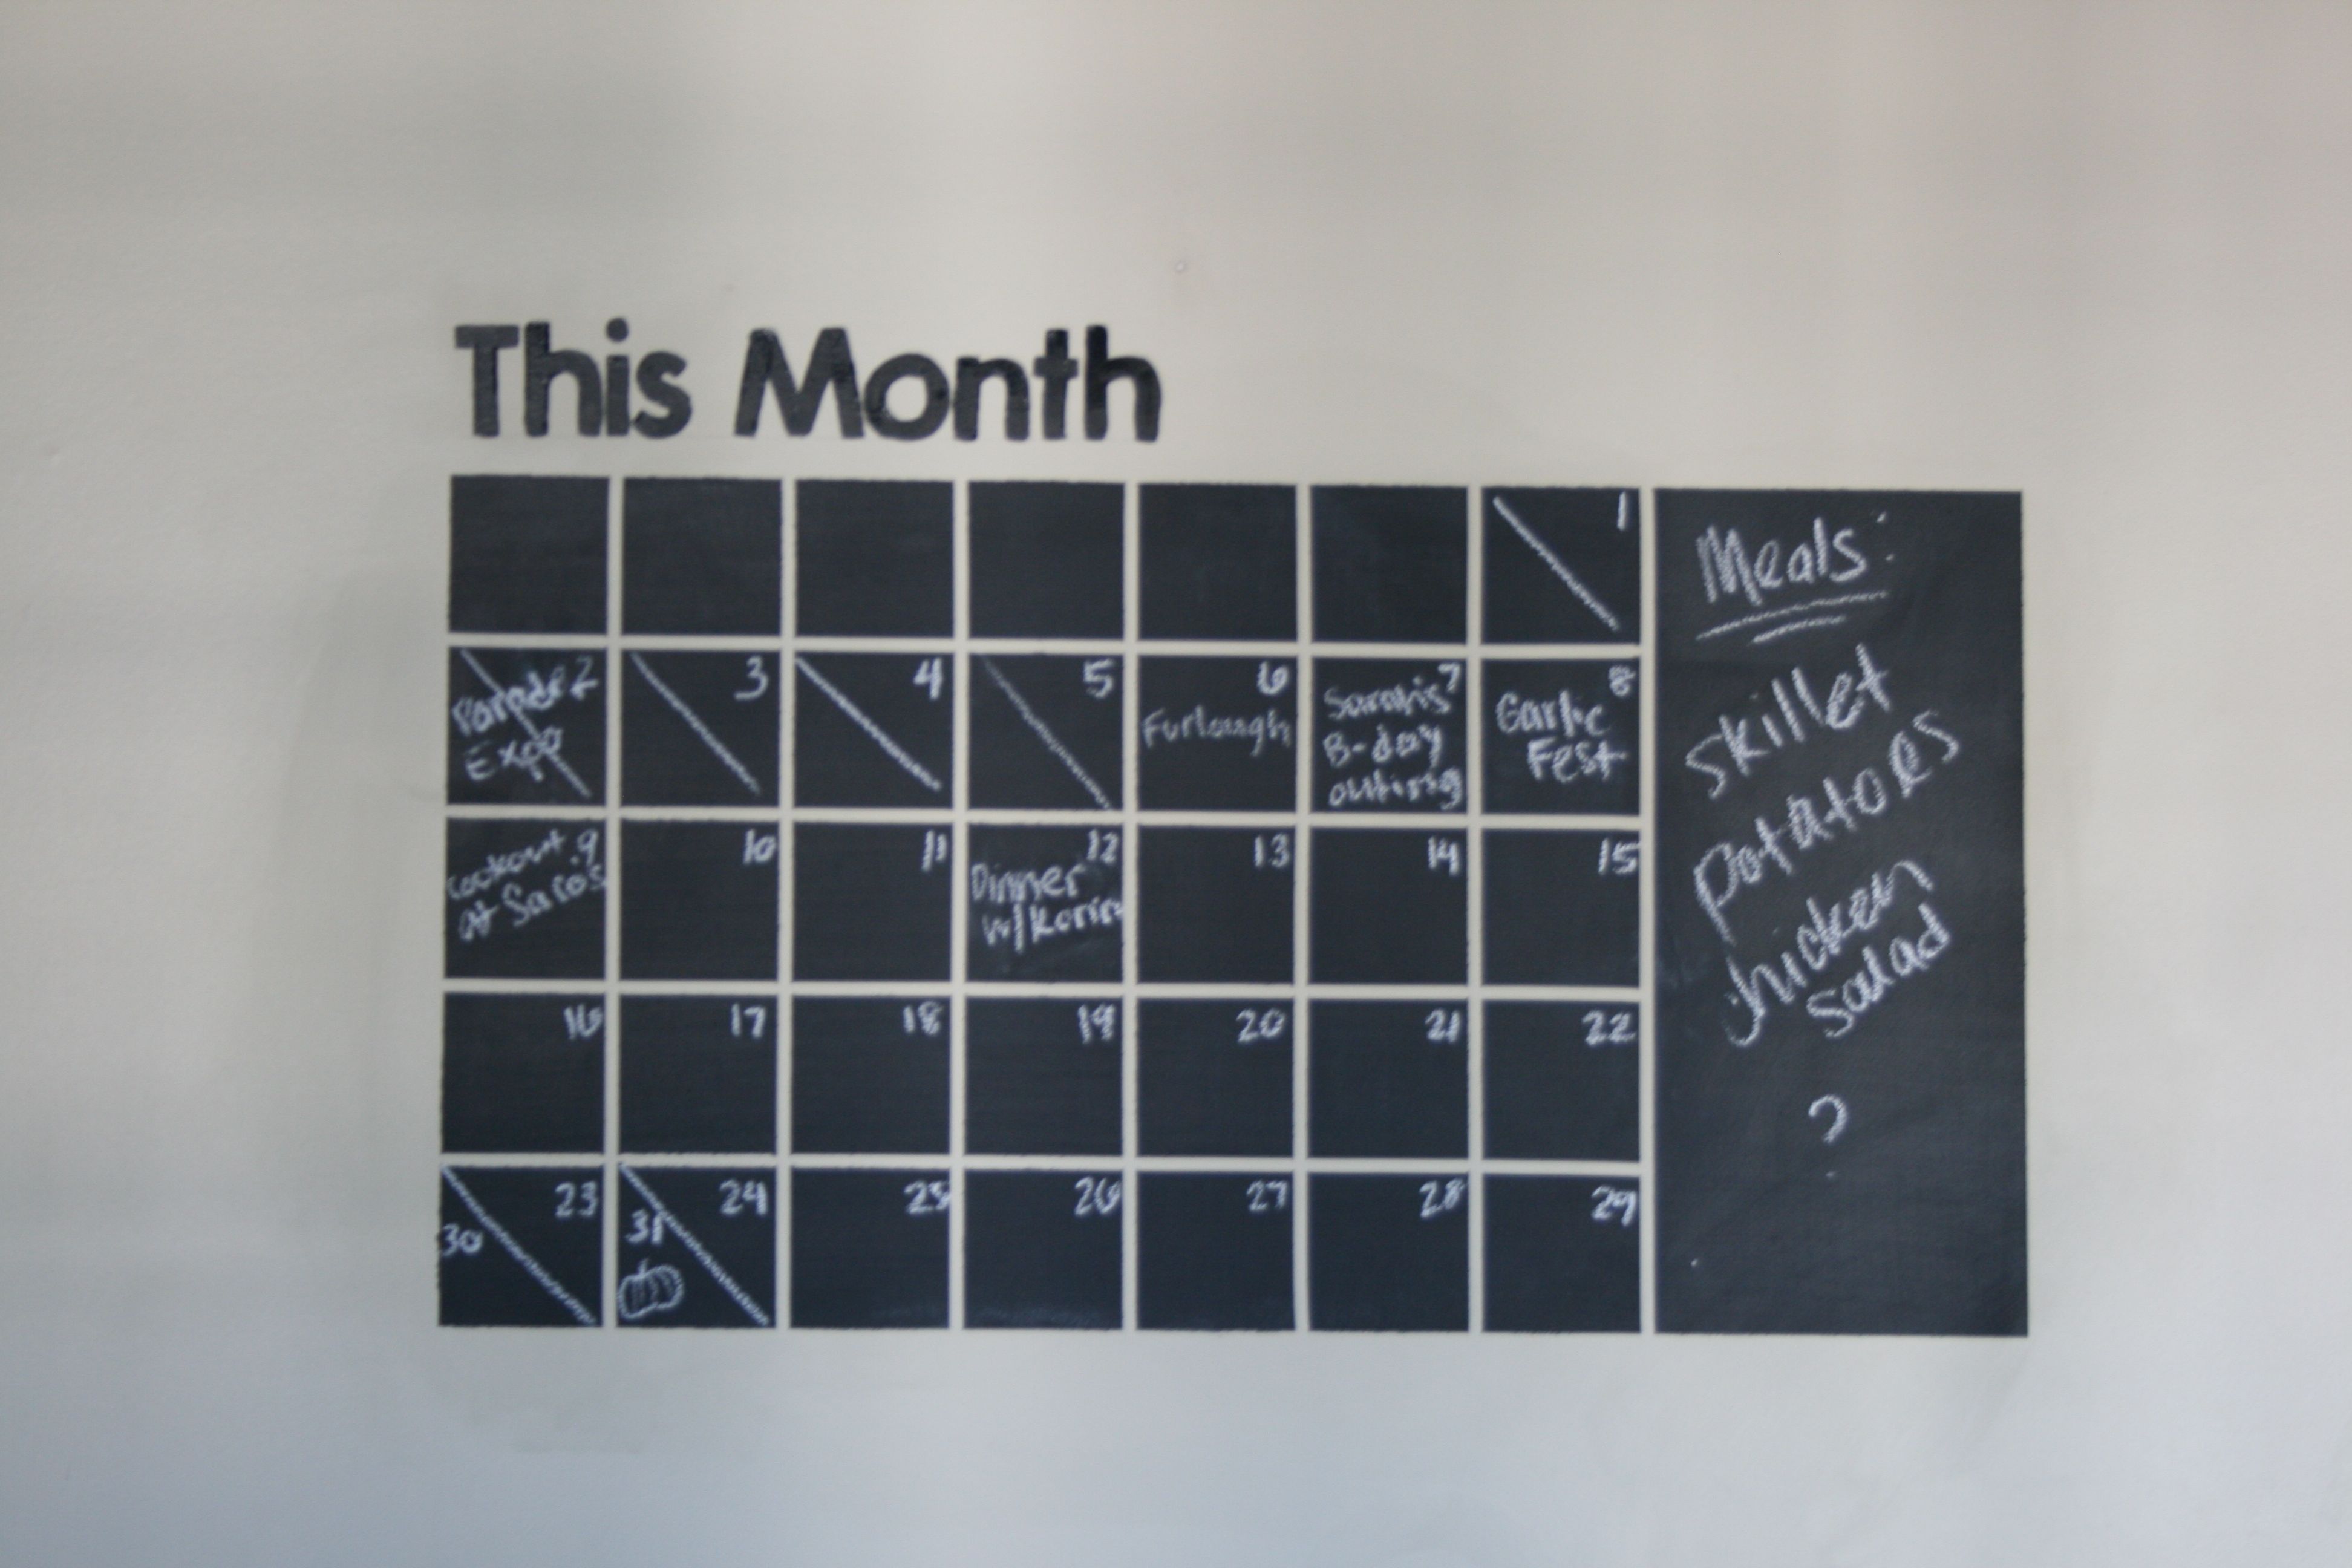 This Month
1
Meals:
2
Parade
Expo
3
4
5
6
Furlough
7
Sarah's
B-day
outing
8
Garlic
Fest
skillet
potatoes
chicken
salad
?
9
cookout
at Sara's
10
11
12
Dinner
w/Karin
13
14
15
16
17
18
19
20
21
22
23
30
24
31
25
26
27
28
29